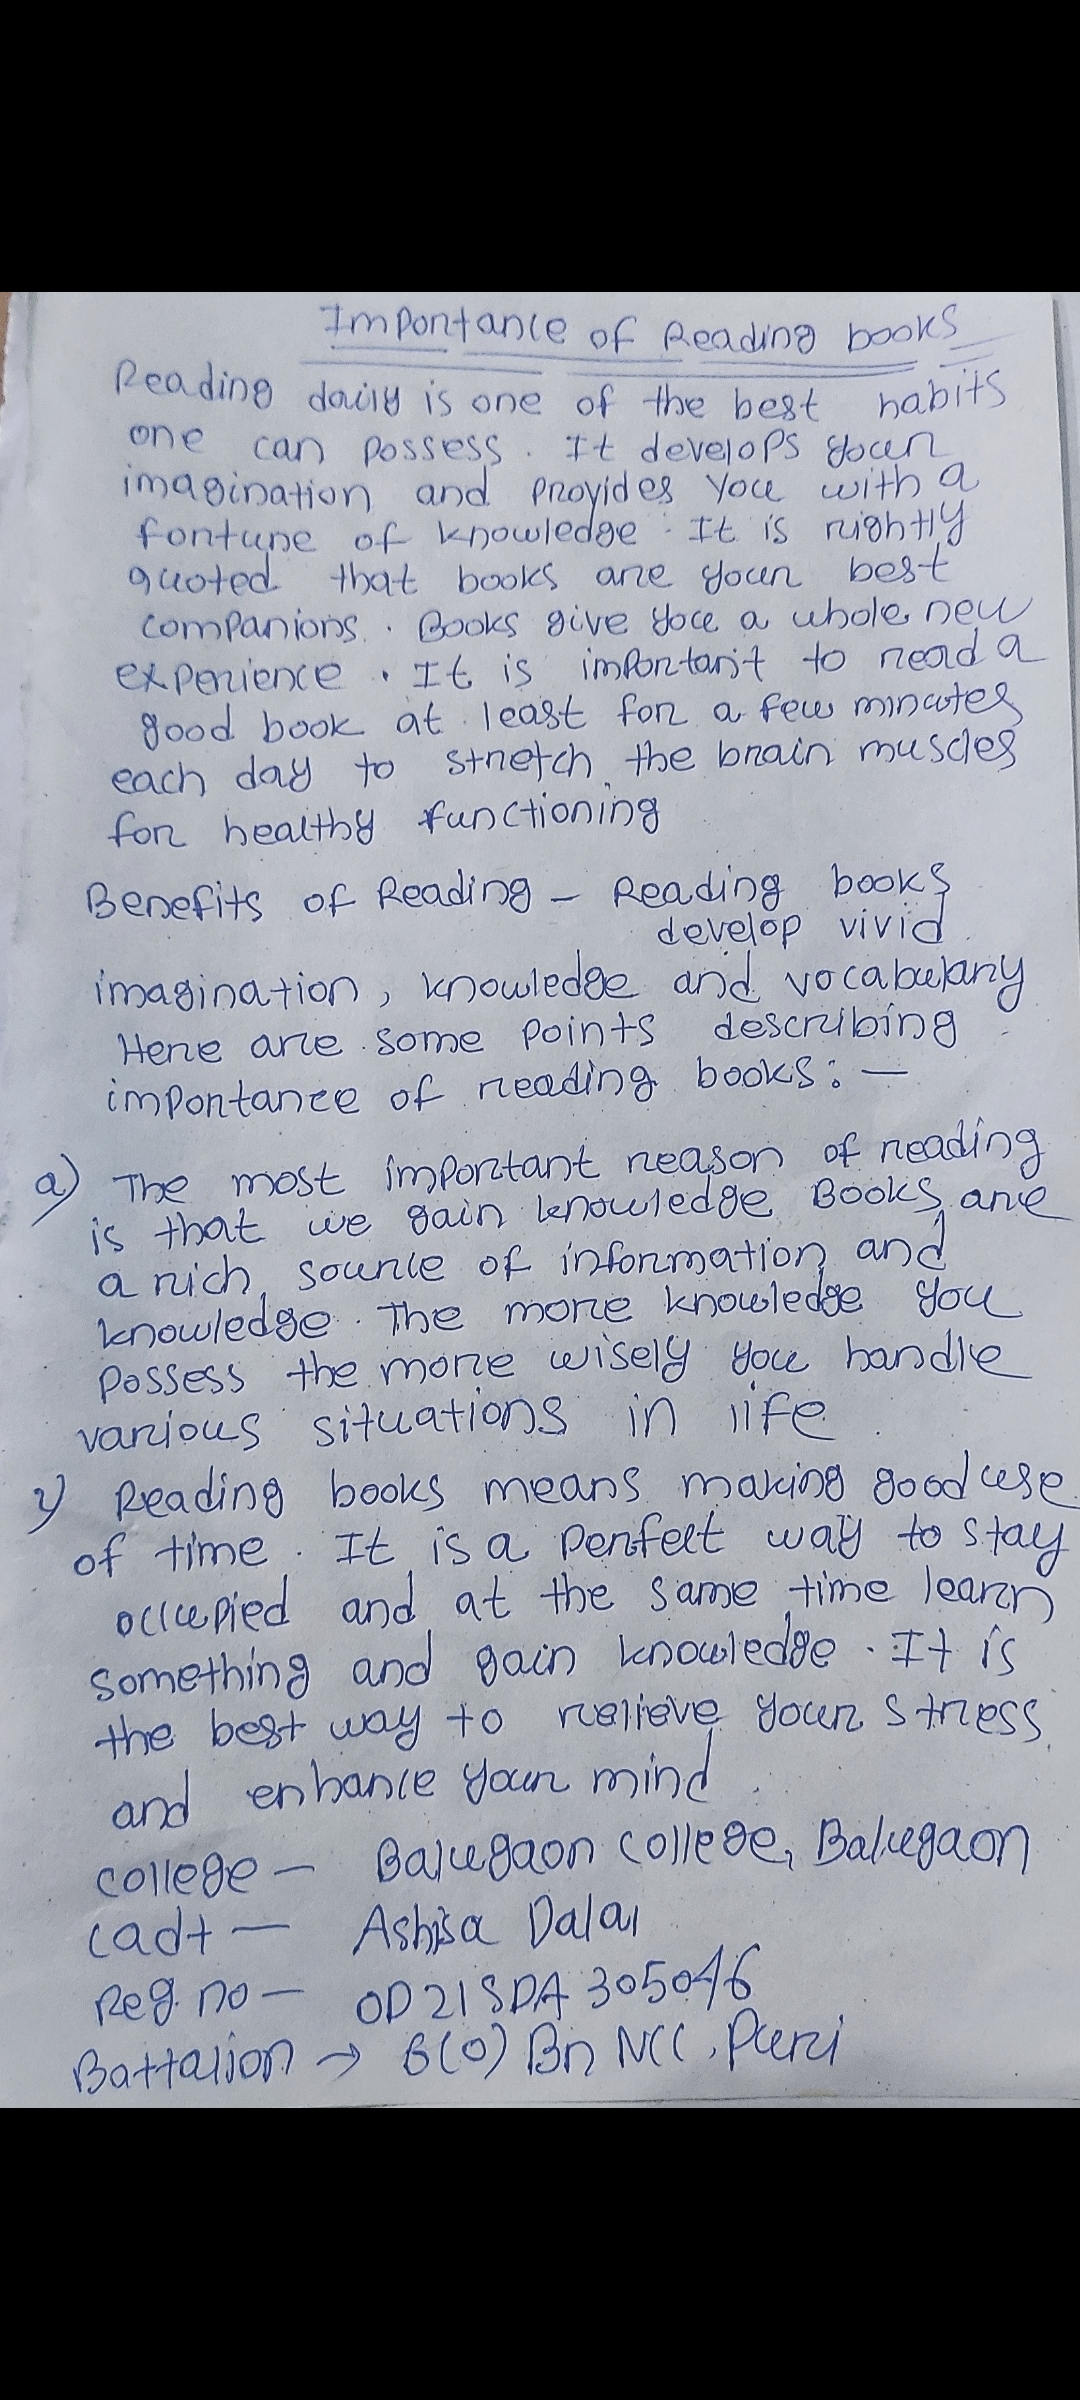 Importance of Reading books
Reading daily is one of the best habits
one can possess. It develops your
imagination and provides you with a
fortune of knowledge. It is rightly
quoted that books are your best
companions. Books give you a whole new
experience. It is important to read a
good book at least for a few minutes
each day to stretch the brain muscles
for healthy functioning
Benefits of Reading - Reading books
develop vivid
imagination, knowledge and vocabulary
Here are some points describing
importance of reading books: -
a) The most important reason of reading
is that we gain knowledge Books are
a rich source of information and
knowledge. The more knowledge you
possess the more wisely you handle
various situations in life.
2) Reading books means making good use
of time. It is a perfect way to stay
occupied and at the same time learn
something and gain knowledge. It is
the best way to relieve your stress
and enhance your mind.
college - Balugaon college, Balugaon
cadt - Dalai
Reg. no - OD21SDA305046
Battalion → 6(O) Bn NCC, Puri